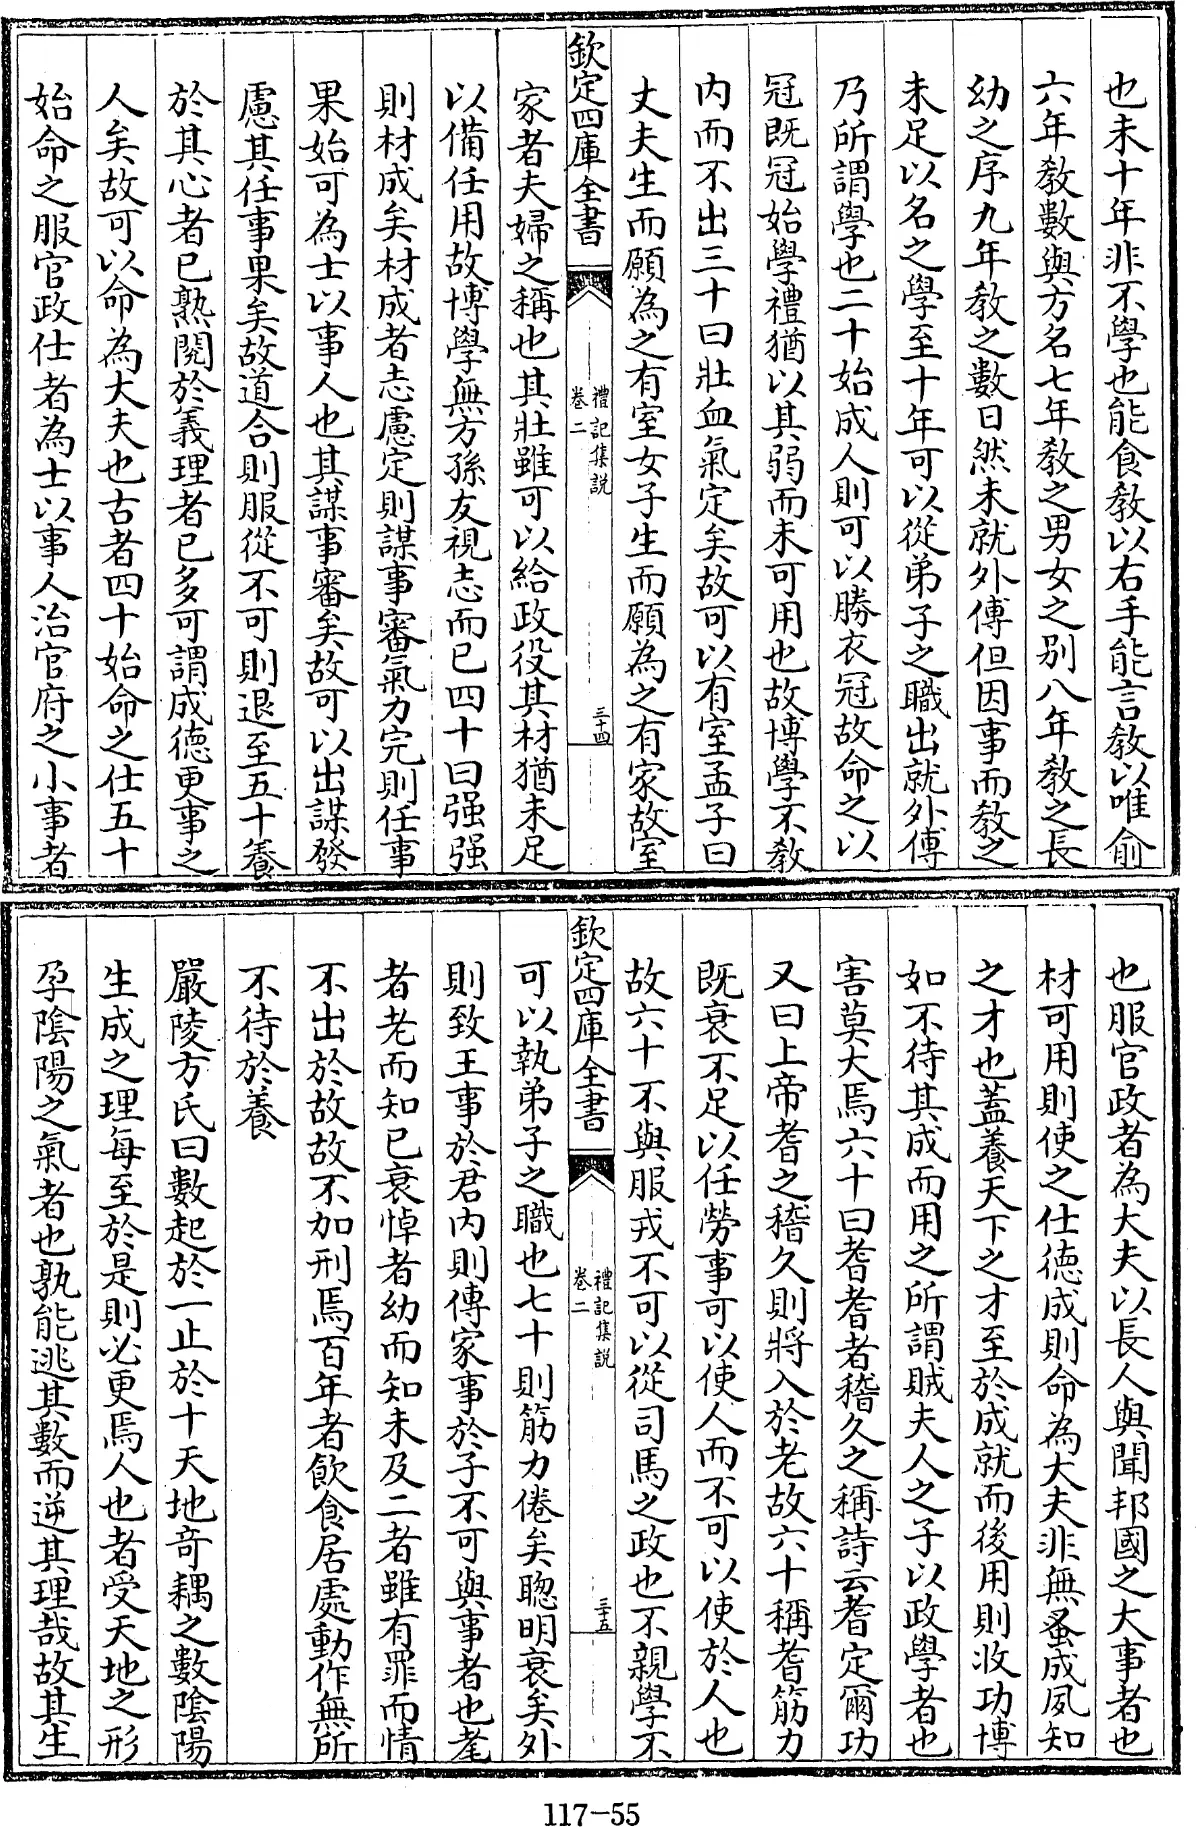 也未十年非不學也能食教以右手能言教以唯俞
六年教數與方名七年教之男女之別八年教之長
幼之序九年教之數日然未就外傅但因事而教之
未足以名之學至十年可以從弟子之職出就外傅
乃所謂學也二十始成人則可以勝衣冠故命之以
冠既冠始學禮猶以其弱而未可用也故博學不教
内而不出三十曰壯血氣定矣故可以有室孟子曰
丈夫生而願為之有室女子生而願為之有家故室
欽定四庫全書
禮記集説
卷二
三十四
家者夫婦之稱也其壯雖可以給政役其材猶未足
以備任用故博學無方孫友視志而已四十曰强强
則材成矣材成者志慮定則謀事審氣力完則任事
果始可為士以事人也其謀事審矣故可以出謀發
慮其任事果矣故道合則服從不可則退至五十養
於其心者已熟閱於義理者已多可謂成德更事之
人矣故可以命為大夫也古者四十始命之仕五十
始命之服官政仕者為士以事人治官府之小事者
也服官政者為大夫以長人與聞邦國之大事者也
材可用則使之仕德成則命為大夫非無蚤成夙知
之才也蓋養天下之才至於成就而後用則收功博
如不待其成而用之所謂賊夫人之子以政學者也
害莫大焉六十曰耆耆者稽久之稱詩云耆定爾功
又曰上帝耆之稽久則將入於老故六十稱耆筋力
既衰不足以任勞事可以使人而不可以使於人也
故六十不與服戎不可以從司馬之政也不親學不
欽定四庫全書
禮記集説
卷二
三十五
可以執弟子之職也七十則筋力倦矣聰明衰矣外
則致王事於君内則傳家事於子不可與事者也耄
者老而知已衰悼者幼而知未及二者雖有罪而情
不出於故故不加刑焉百年者飲食居處動作無所
不待於養
嚴陵方氏曰數起於一止於十天地奇耦之數陰陽
生成之理每至於是則必更焉人也者受天地之形
孕陰陽之氣者也孰能逃其數而逆其理哉故其生
117-55